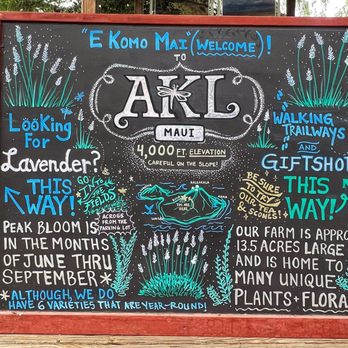 "E Komo Mai" (Welcome)!
TO
AKL
MAUI
4,000 FT. ELEVATION
CAREFUL ON THE SLOPE!
Looking
For
Lavender?
THIS
WAY!
IN THE
FIELDS
ACROSS FROM THE
PARKING LOT
PEAK BLOOM IS
IN THE MONTHS
OF JUNE THRU
SEPTEMBER *
*ALTHOUGH, WE DO
HAVE 6 VARIETIES THAT ARE YEAR-ROUND!
WALKING
TRAILWAYS
AND
GIFTSHOP
THIS
WAY!
BE SURE
TO TRY
OUR TEA
& SCONES!
HALEAKALA
OUR FARM IS APPROX
13.5 ACRES LARGE
AND IS HOME TO
MANY UNIQUE
PLANTS + FLORA